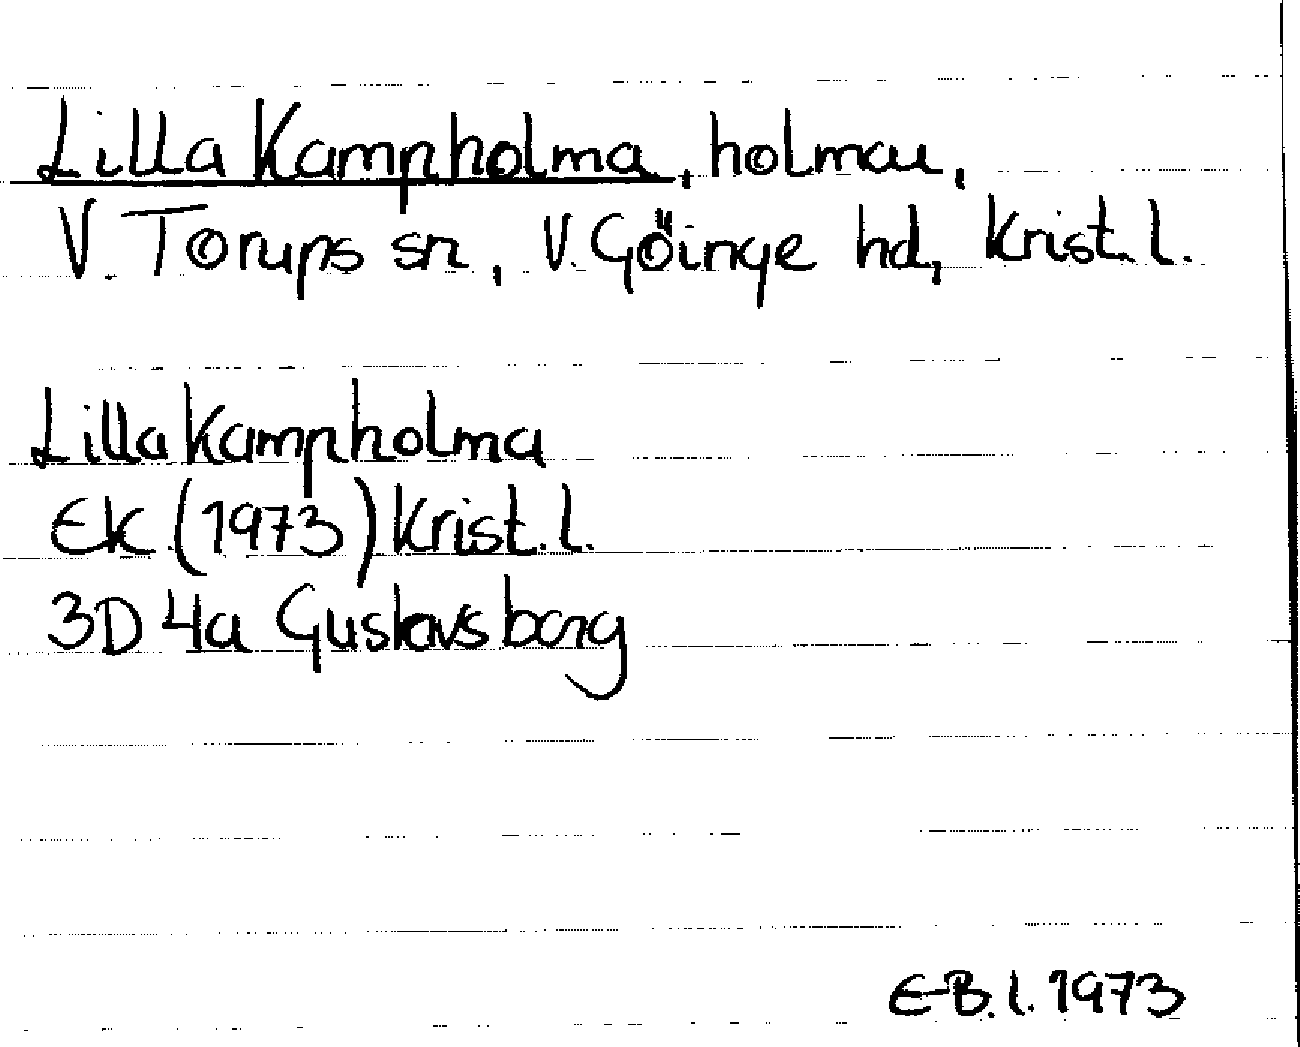 Lilla Kampholma, holmar,
V. Torups sn, V. Göinge hd, Krist. l.
Lilla Kampholma
EK (1973) Krist. l.
3D 4a Gustavsborg
E-B. l. 1973